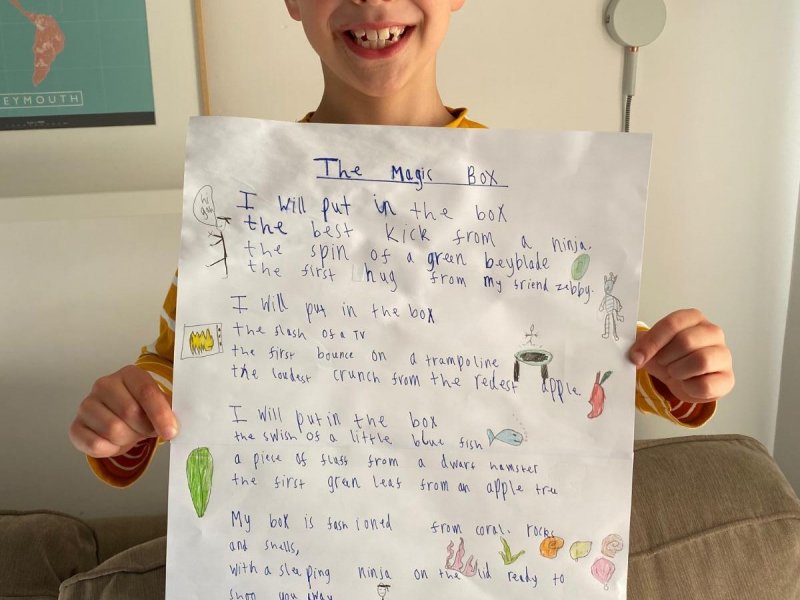 EYMOUTH
The Magic Box
I will put in the box
the best kick from a ninja.
the spin of a green beyblade
the first hug from my friend zebby.
I will put in the box
the flash of a TV
the first bounce on a trampoline
the loudest crunch from the redest apple.
I will put in the box
the swish of a little blue fish
a piece of fluff from a dwarf hamster
the first green leaf from an apple tree
My box is fashioned from coral. rocks
and shells,
with a sleeping ninja on the lid ready to
you away